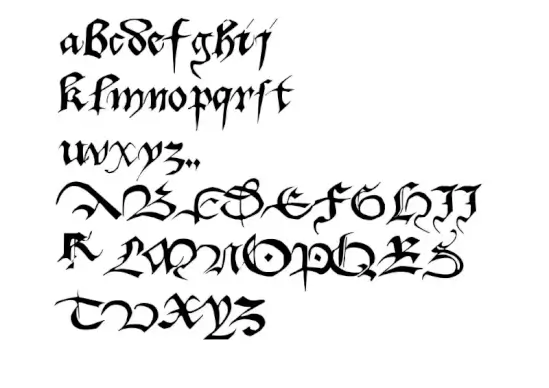 abcdefghij
klmnopqrſt
uvxyz..
ABCDEFGHIJ
K LMNOPQRS
TVXYZ